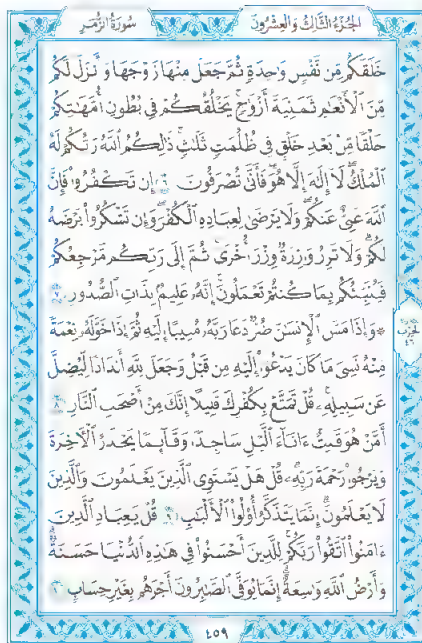 الجزء الثالث والعشرون سورة الزمر
خَلَقَكُم مِّن نَّفْسٍ وَٰحِدَةٍ ثُمَّ جَعَلَ مِنْهَا زَوْجَهَا وَأَنزَلَ لَكُم
مِّنَ ٱلْأَنْعَٰمِ ثَمَٰنِيَةَ أَزْوَٰجٍ ۚ يَخْلُقُكُمْ فِى بُطُونِ أُمَّهَٰتِكُمْ
خَلْقًا مِّنۢ بَعْدِ خَلْقٍ فِى ظُلُمَٰتٍ ثَلَٰثٍ ۚ ذَٰلِكُمُ ٱللَّهُ رَبُّكُمْ لَهُ
ٱلْمُلْكُ ۖ لَآ إِلَٰهَ إِلَّا هُوَ ۖ فَأَنَّىٰ تُصْرَفُونَ ٦ إِن تَكْفُرُوا۟ فَإِنَّ
ٱللَّهَ غَنِىٌّ عَنكُمْ ۖ وَلَا يَرْضَىٰ لِعِبَادِهِ ٱلْكُفْرَ ۖ وَإِن تَشْكُرُوا۟ يَرْضَهُ
لَكُمْ ۗ وَلَا تَزِرُ وَازِرَةٌ وِزْرَ أُخْرَىٰ ۗ ثُمَّ إِلَىٰ رَبِّكُم مَّرْجِعُكُمْ
فَيُنَبِّئُكُم بِمَا كُنتُمْ تَعْمَلُونَ ۚ إِنَّهُۥ عَلِيمٌۢ بِذَاتِ ٱلصُّدُورِ ٧
۞ وَإِذَا مَسَّ ٱلْإِنسَٰنَ ضُرٌّ دَعَا رَبَّهُۥ مُنِيبًا إِلَيْهِ ثُمَّ إِذَا خَوَّلَهُۥ نِعْمَةً
مِّنْهُ نَسِىَ مَا كَانَ يَدْعُوٓا۟ إِلَيْهِ مِن قَبْلُ وَجَعَلَ لِلَّهِ أَندَادًا لِّيُضِلَّ
عَن سَبِيلِهِۦ ۚ قُلْ تَمَتَّعْ بِكُفْرِكَ قَلِيلًا ۖ إِنَّكَ مِنْ أَصْحَٰبِ ٱلنَّارِ ٨
أَمَّنْ هُوَ قَٰنِتٌ ءَانَآءَ ٱلَّيْلِ سَاجِدًا وَقَآئِمًا يَحْذَرُ ٱلْءَاخِرَةَ
وَيَرْجُوا۟ رَحْمَةَ رَبِّهِۦ ۗ قُلْ هَلْ يَسْتَوِى ٱلَّذِينَ يَعْلَمُونَ وَٱلَّذِينَ
لَا يَعْلَمُونَ ۗ إِنَّمَا يَتَذَكَّرُ أُو۟لُوا۟ ٱلْأَلْبَٰبِ ٩ قُلْ يَٰعِبَادِ ٱلَّذِينَ
ءَامَنُوا۟ ٱتَّقُوا۟ رَبَّكُمْ ۚ لِلَّذِينَ أَحْسَنُوا۟ فِى هَٰذِهِ ٱلدُّنْيَا حَسَنَةٌ ۗ
وَأَرْضُ ٱللَّهِ وَٰسِعَةٌ ۗ إِنَّمَا يُوَفَّى ٱلصَّٰبِرُونَ أَجْرَهُم بِغَيْرِ حِسَابٍ ١٠
٤٥٩